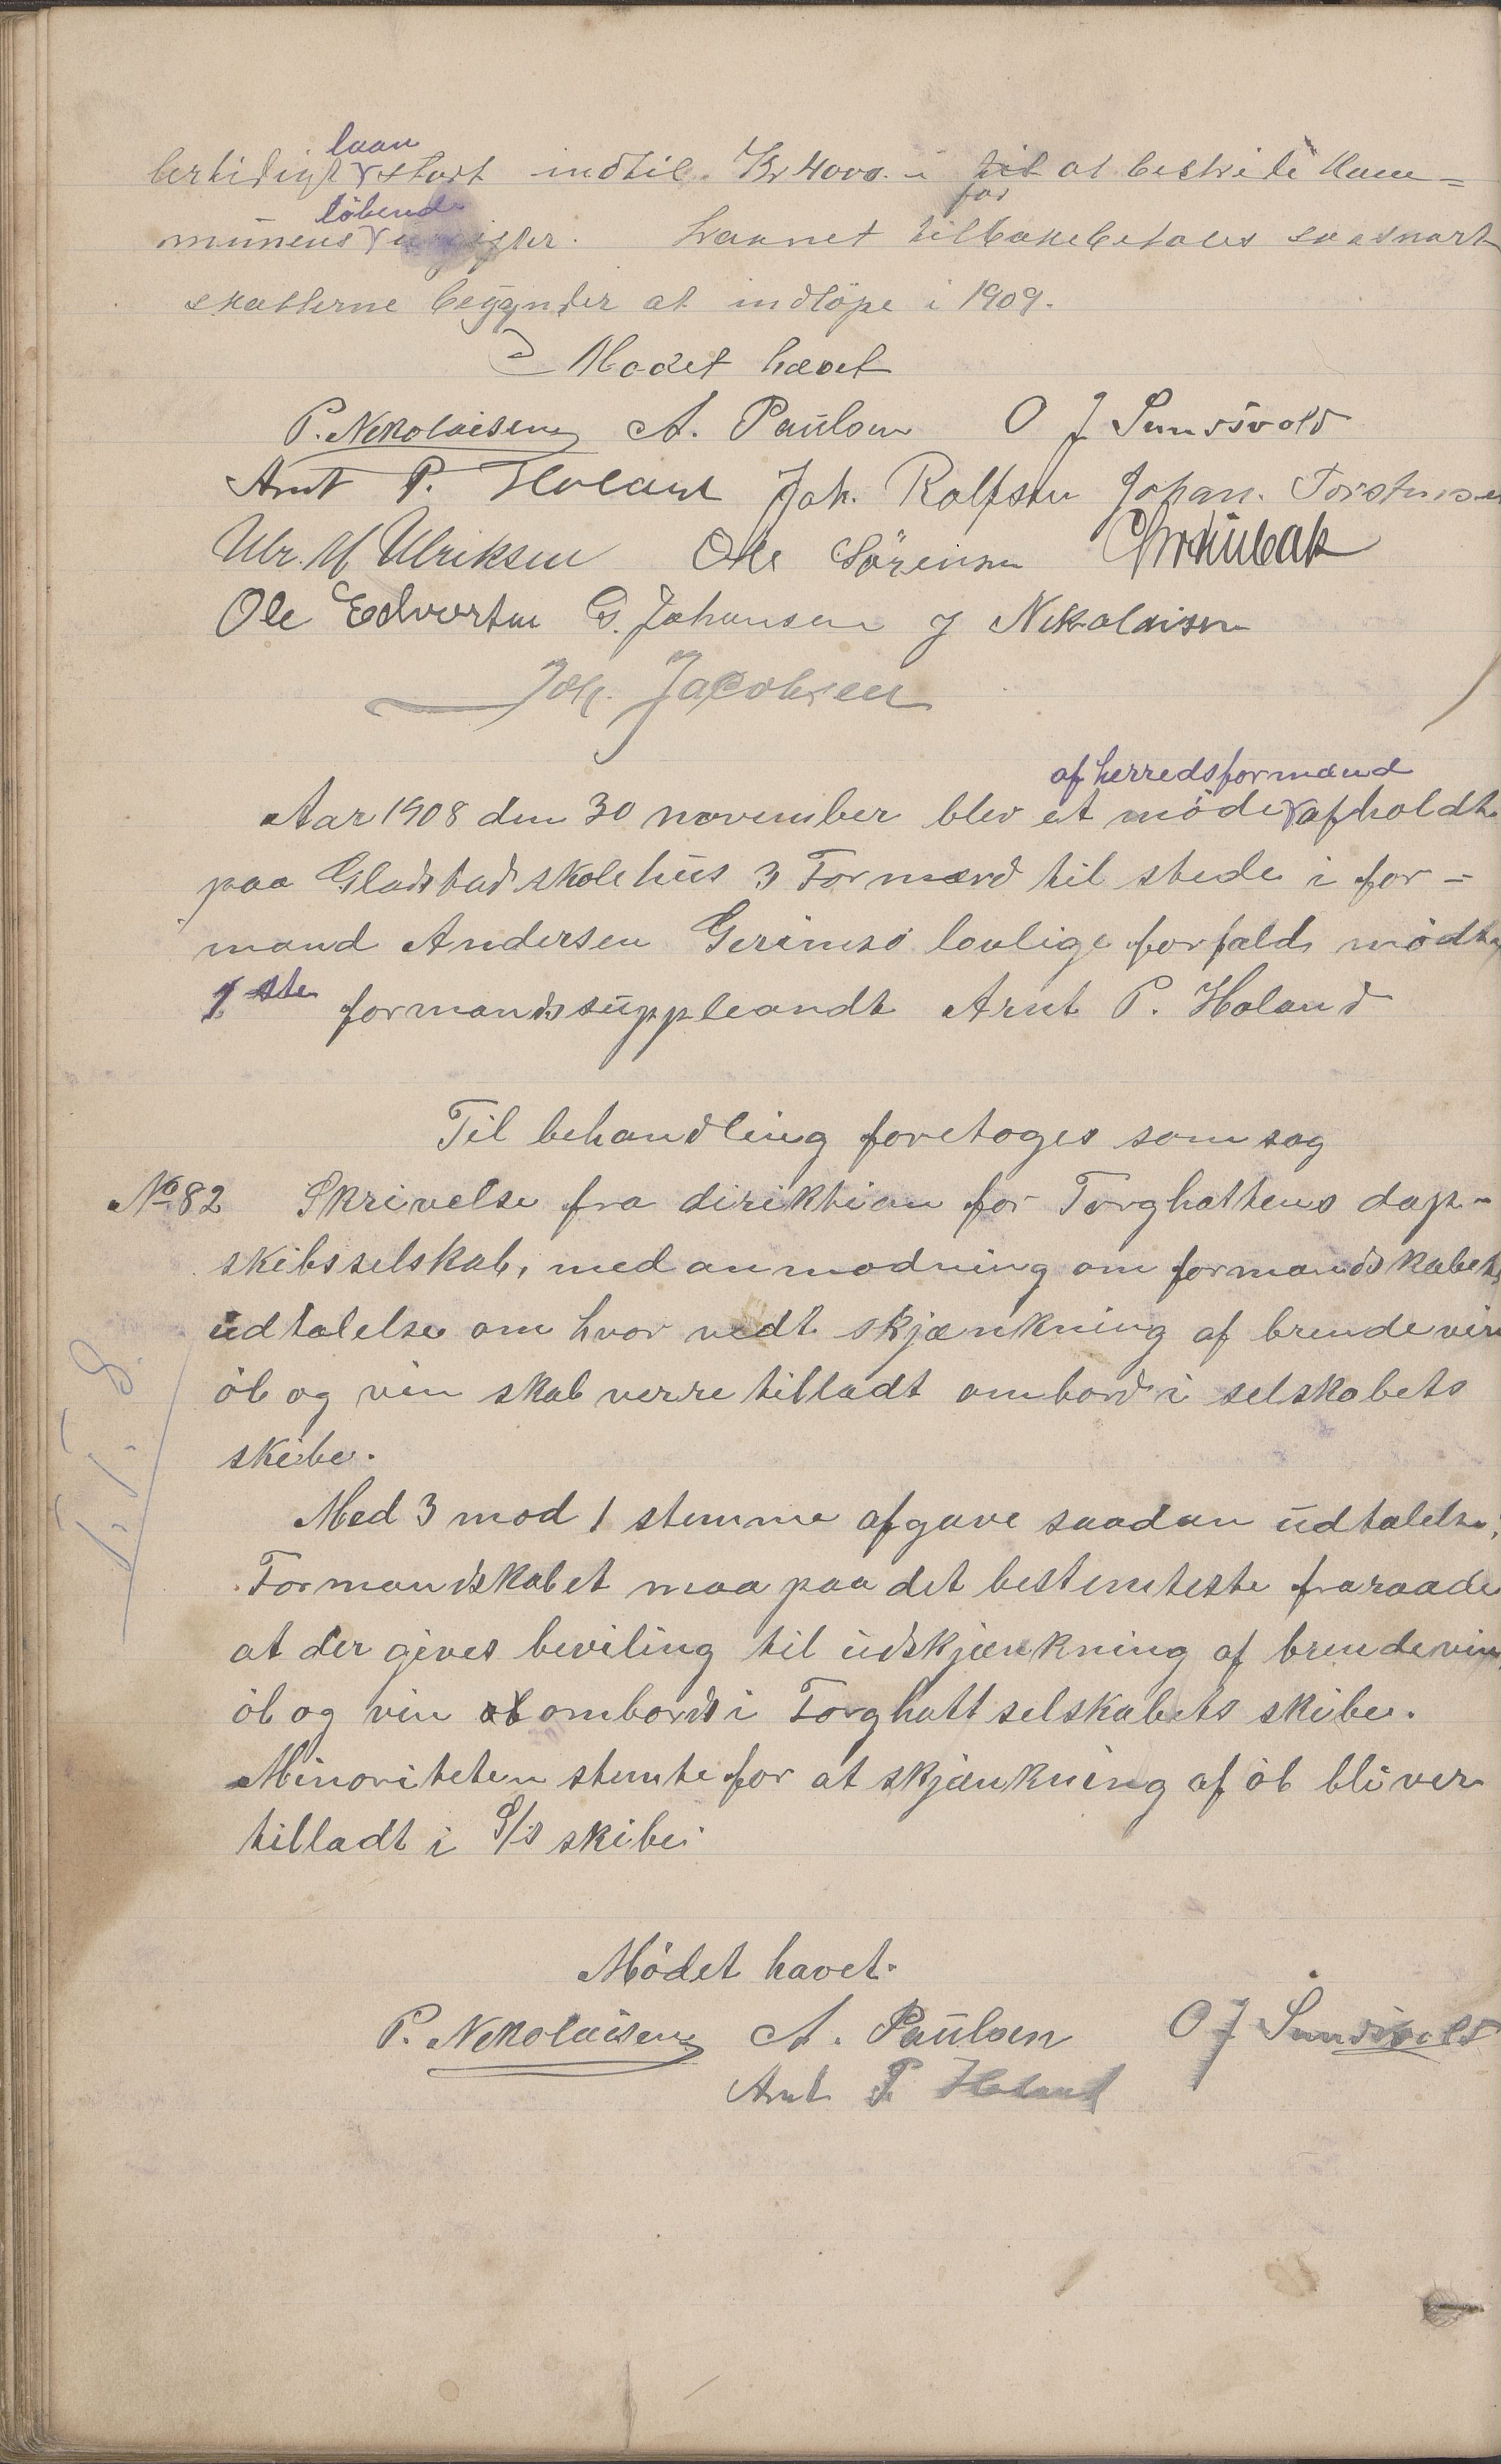 laan
lertidigt stort indtil Kr 4000 i til at bestride Kom=
for
löbende
munens utgifter. Laanet tilbakebetales saasnart
skatterne begynder at indløpe i 1909.
Modet hævet
P. Nikolaisen A. Paulsen O J Sundsvold
Arnt P. Holand Joh. Rolfsen Johan. Torstensen
Ulr. M Ulriksen Ole Sörensen
Ole Edvartsen G. Johansen J Nikolaisen
Joh. Jacobsen
af herredsformænd
Aar 1908 den 30 november blev et möde afholdt
paa Gladstad skolehus 3 Formænd til stede i for=
mand Andersen Gerimsö lovlige forfald mödte
1ste formandssuppleandt Arnt P. Holand
Til behandling foretoges som sag
No 82 Skrivelse fra diriktion for Torghattens dap-
skibsselskab, med anmodning om formandskabets
udtalelse om hvor vedt skjænkning af brendevin
öl og vin skal verre tilladt ombord i selskabets
skibe.
Med 3 mod 1 stemme afgave saadan udtalelse;
Formandskabet maa paa det bestemteste fraraade
at der gives beviling til udskjænkning af brendevin
öl og vin ombord i Torghatt selskabets skibe.
Minoriteten stemte for at skjænkning af öl bliver
tilladt i S/s skibe.
Mödet hævet.
P. Nikolaisen A. Paulsen O J Sundsvold
Arnt P Holand